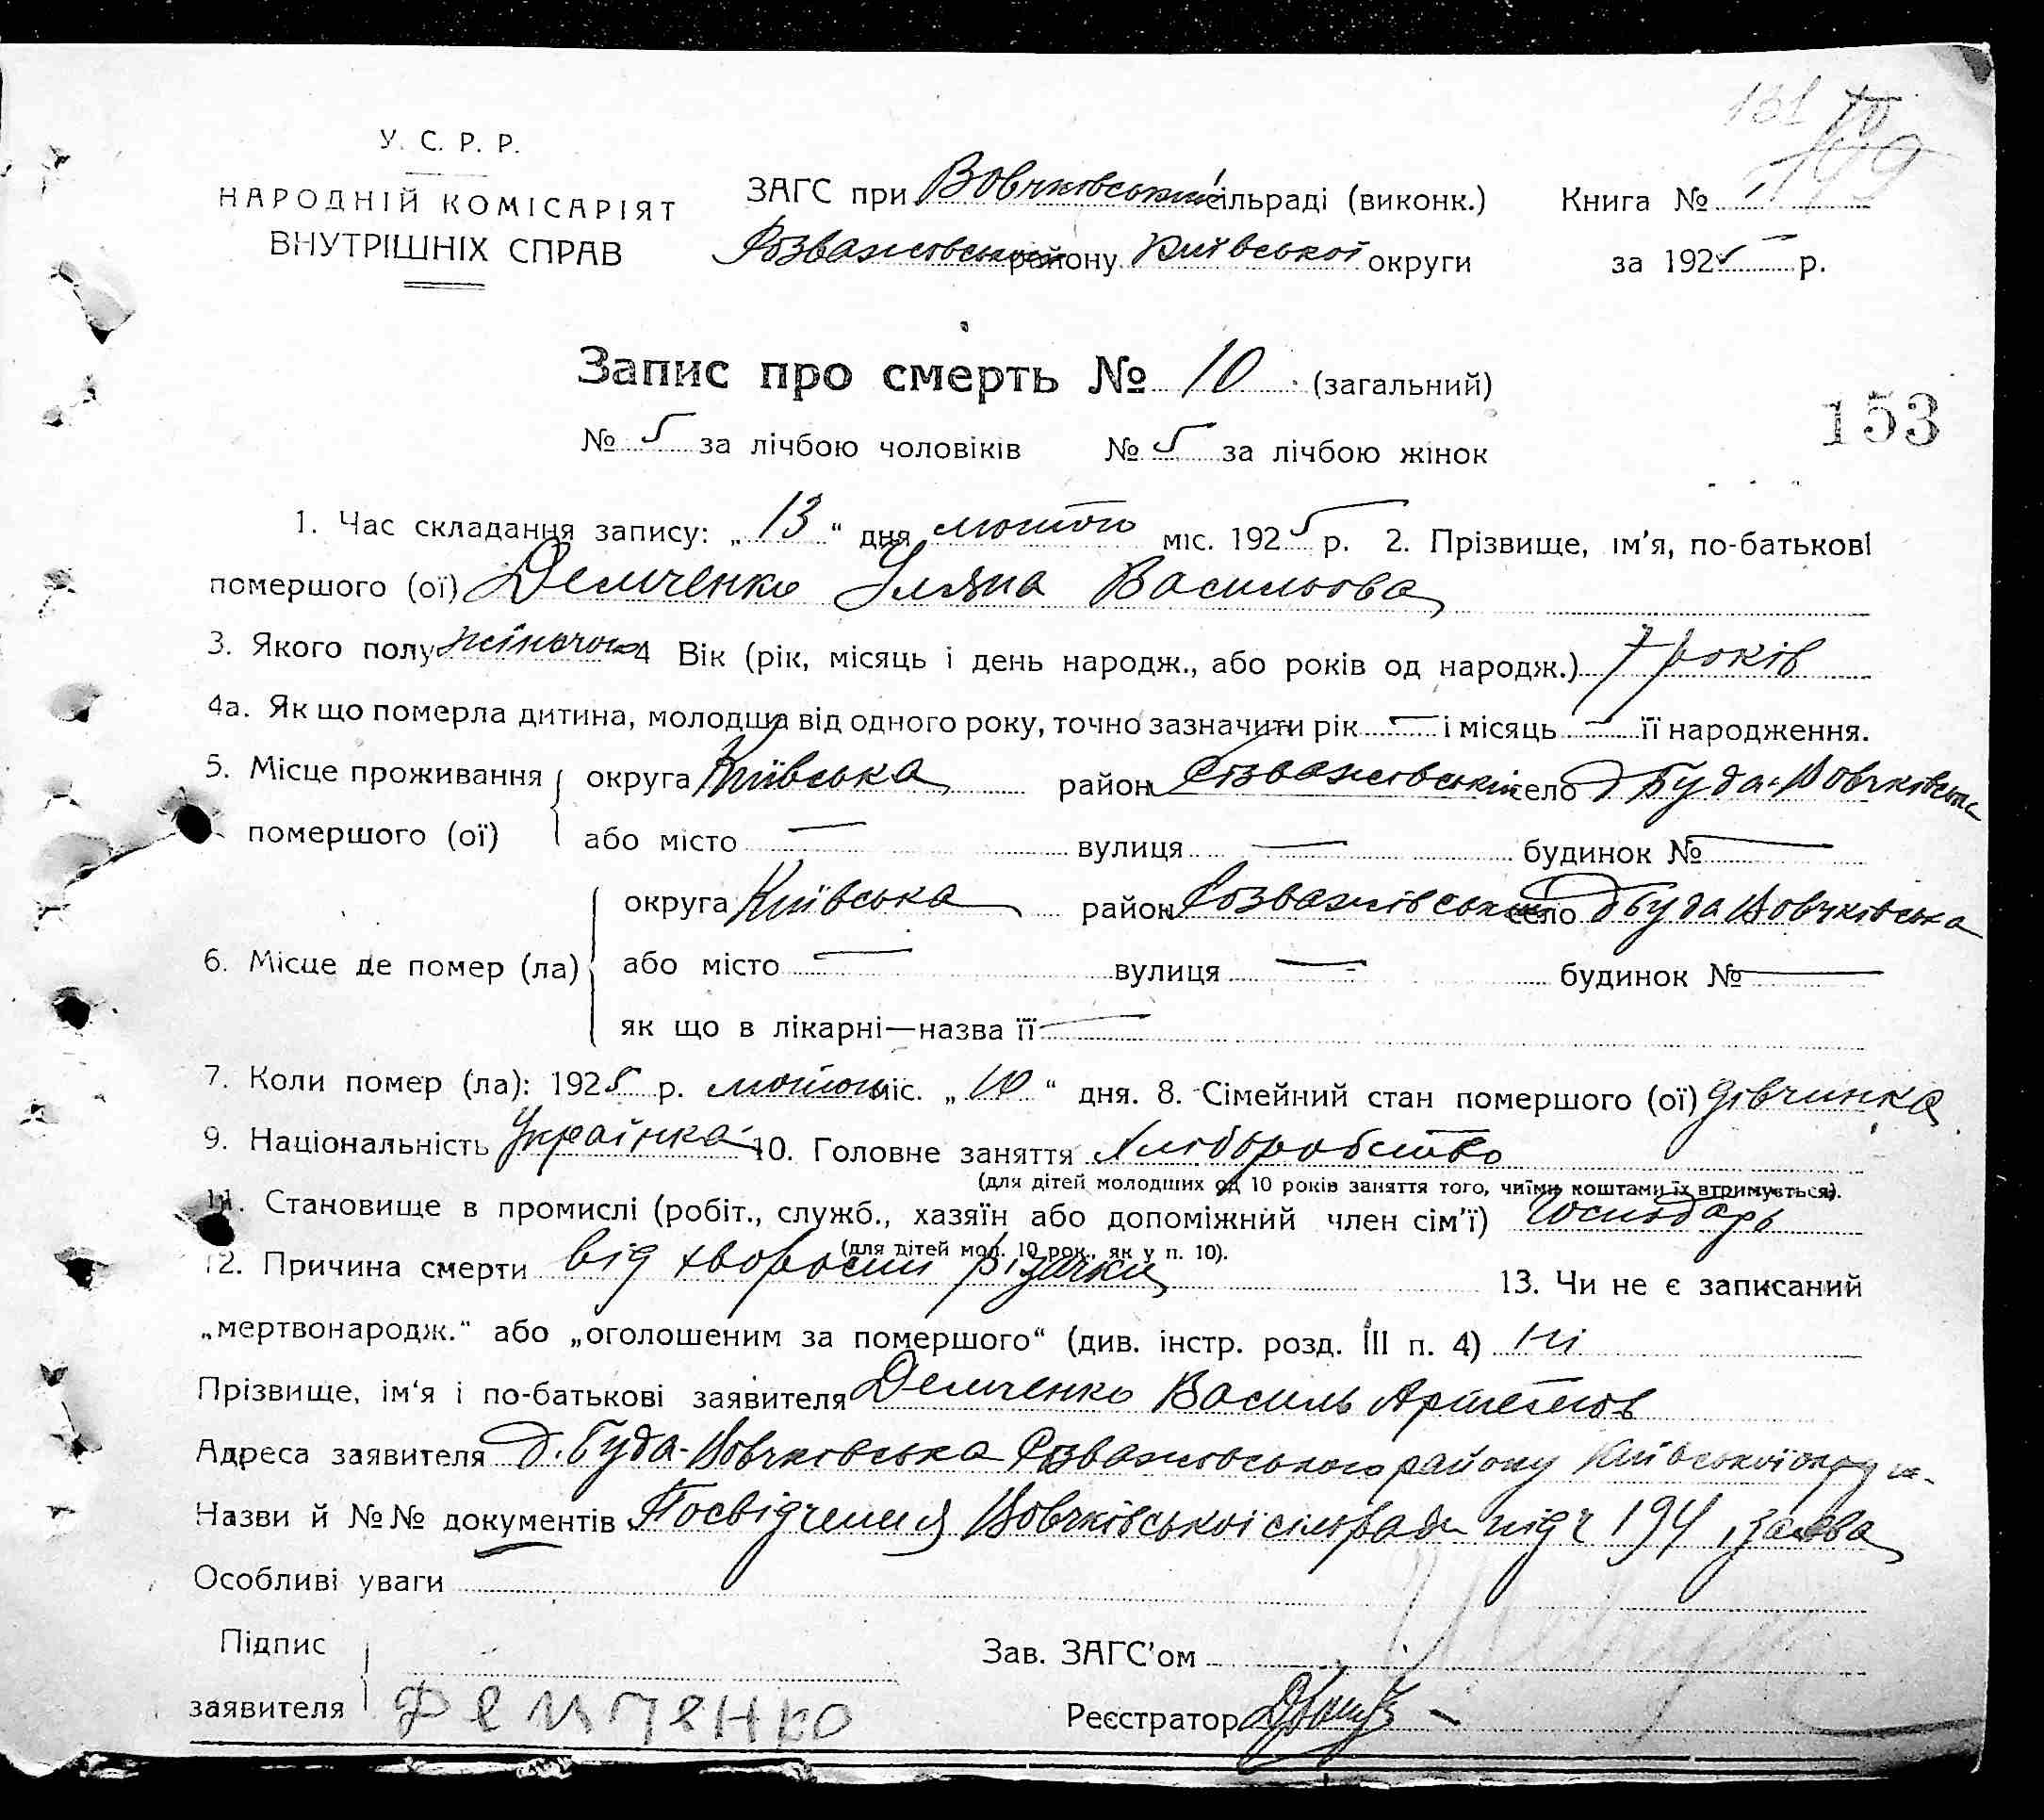 131
У. С. Р. Р.
НАРОДНІЙ КОМІСАРІЯТ
ВНУТРІШНІХ СПРАВ
ЗАГС при Вовчковській сільраді (виконк.) Книга № 1
Розважовського району Київської округи за 1925 р.
Запис про смерть № 10 (загальний)
153
№ 5 за лічбою чоловіків № 5 за лічбою жінок
1. Час складання запису: „13“ дня лютого міс. 1925 р. 2. Прізвище, ім'я, по-батькові
помершого (ої) Демченко Уляна Васильова
3. Якого полу жіночого 4 Вік (рік, місяць і день народж., або років од народж.) 7 років
4а. Як що померла дитина, молодша від одного року, точно зазначити рік — і місяць — її народження.
5. Місце проживання помершого (ої) округа Київська район Розважовський село д Буда-Вовчківська
або місто — вулиця — будинок № —
6. Місце де помер (ла) округа Київська район Розважівський село д Буда Вовчківська
або місто — вулиця — будинок № —
як що в лікарні—назва її —
7. Коли помер (ла): 1925 р. лютого міс. „10“ дня. 8. Сімейний стан помершого (ої) дівчинка
9. Національність Українка 10. Головне заняття Хліборобство
(для дітей молодших од 10 років заняття того, чиїми коштами їх втримується).
11. Становище в промислі (робіт., служб., хазяїн або допоміжний член сім'ї) Господарь
(для дітей мол. 10 рок., як у п. 10).
12. Причина смерти від хворости різачки 13. Чи не є записаний
„мертвонародж.“ або „оголошеним за помершого“ (див. інстр. розд. III п. 4) ні
Прізвище, ім'я і по-батькові заявителя Демченко Василь Артемов
Адреса заявителя д. Буда-Вовчковська Розважовського району Київської округи
Назви й №№ документів Посвідчення Вовчківської сільради під ч 194, заява
Особливі уваги
Підпис заявителя Демченко
Зав. ЗАГС'ом
Реєстратор